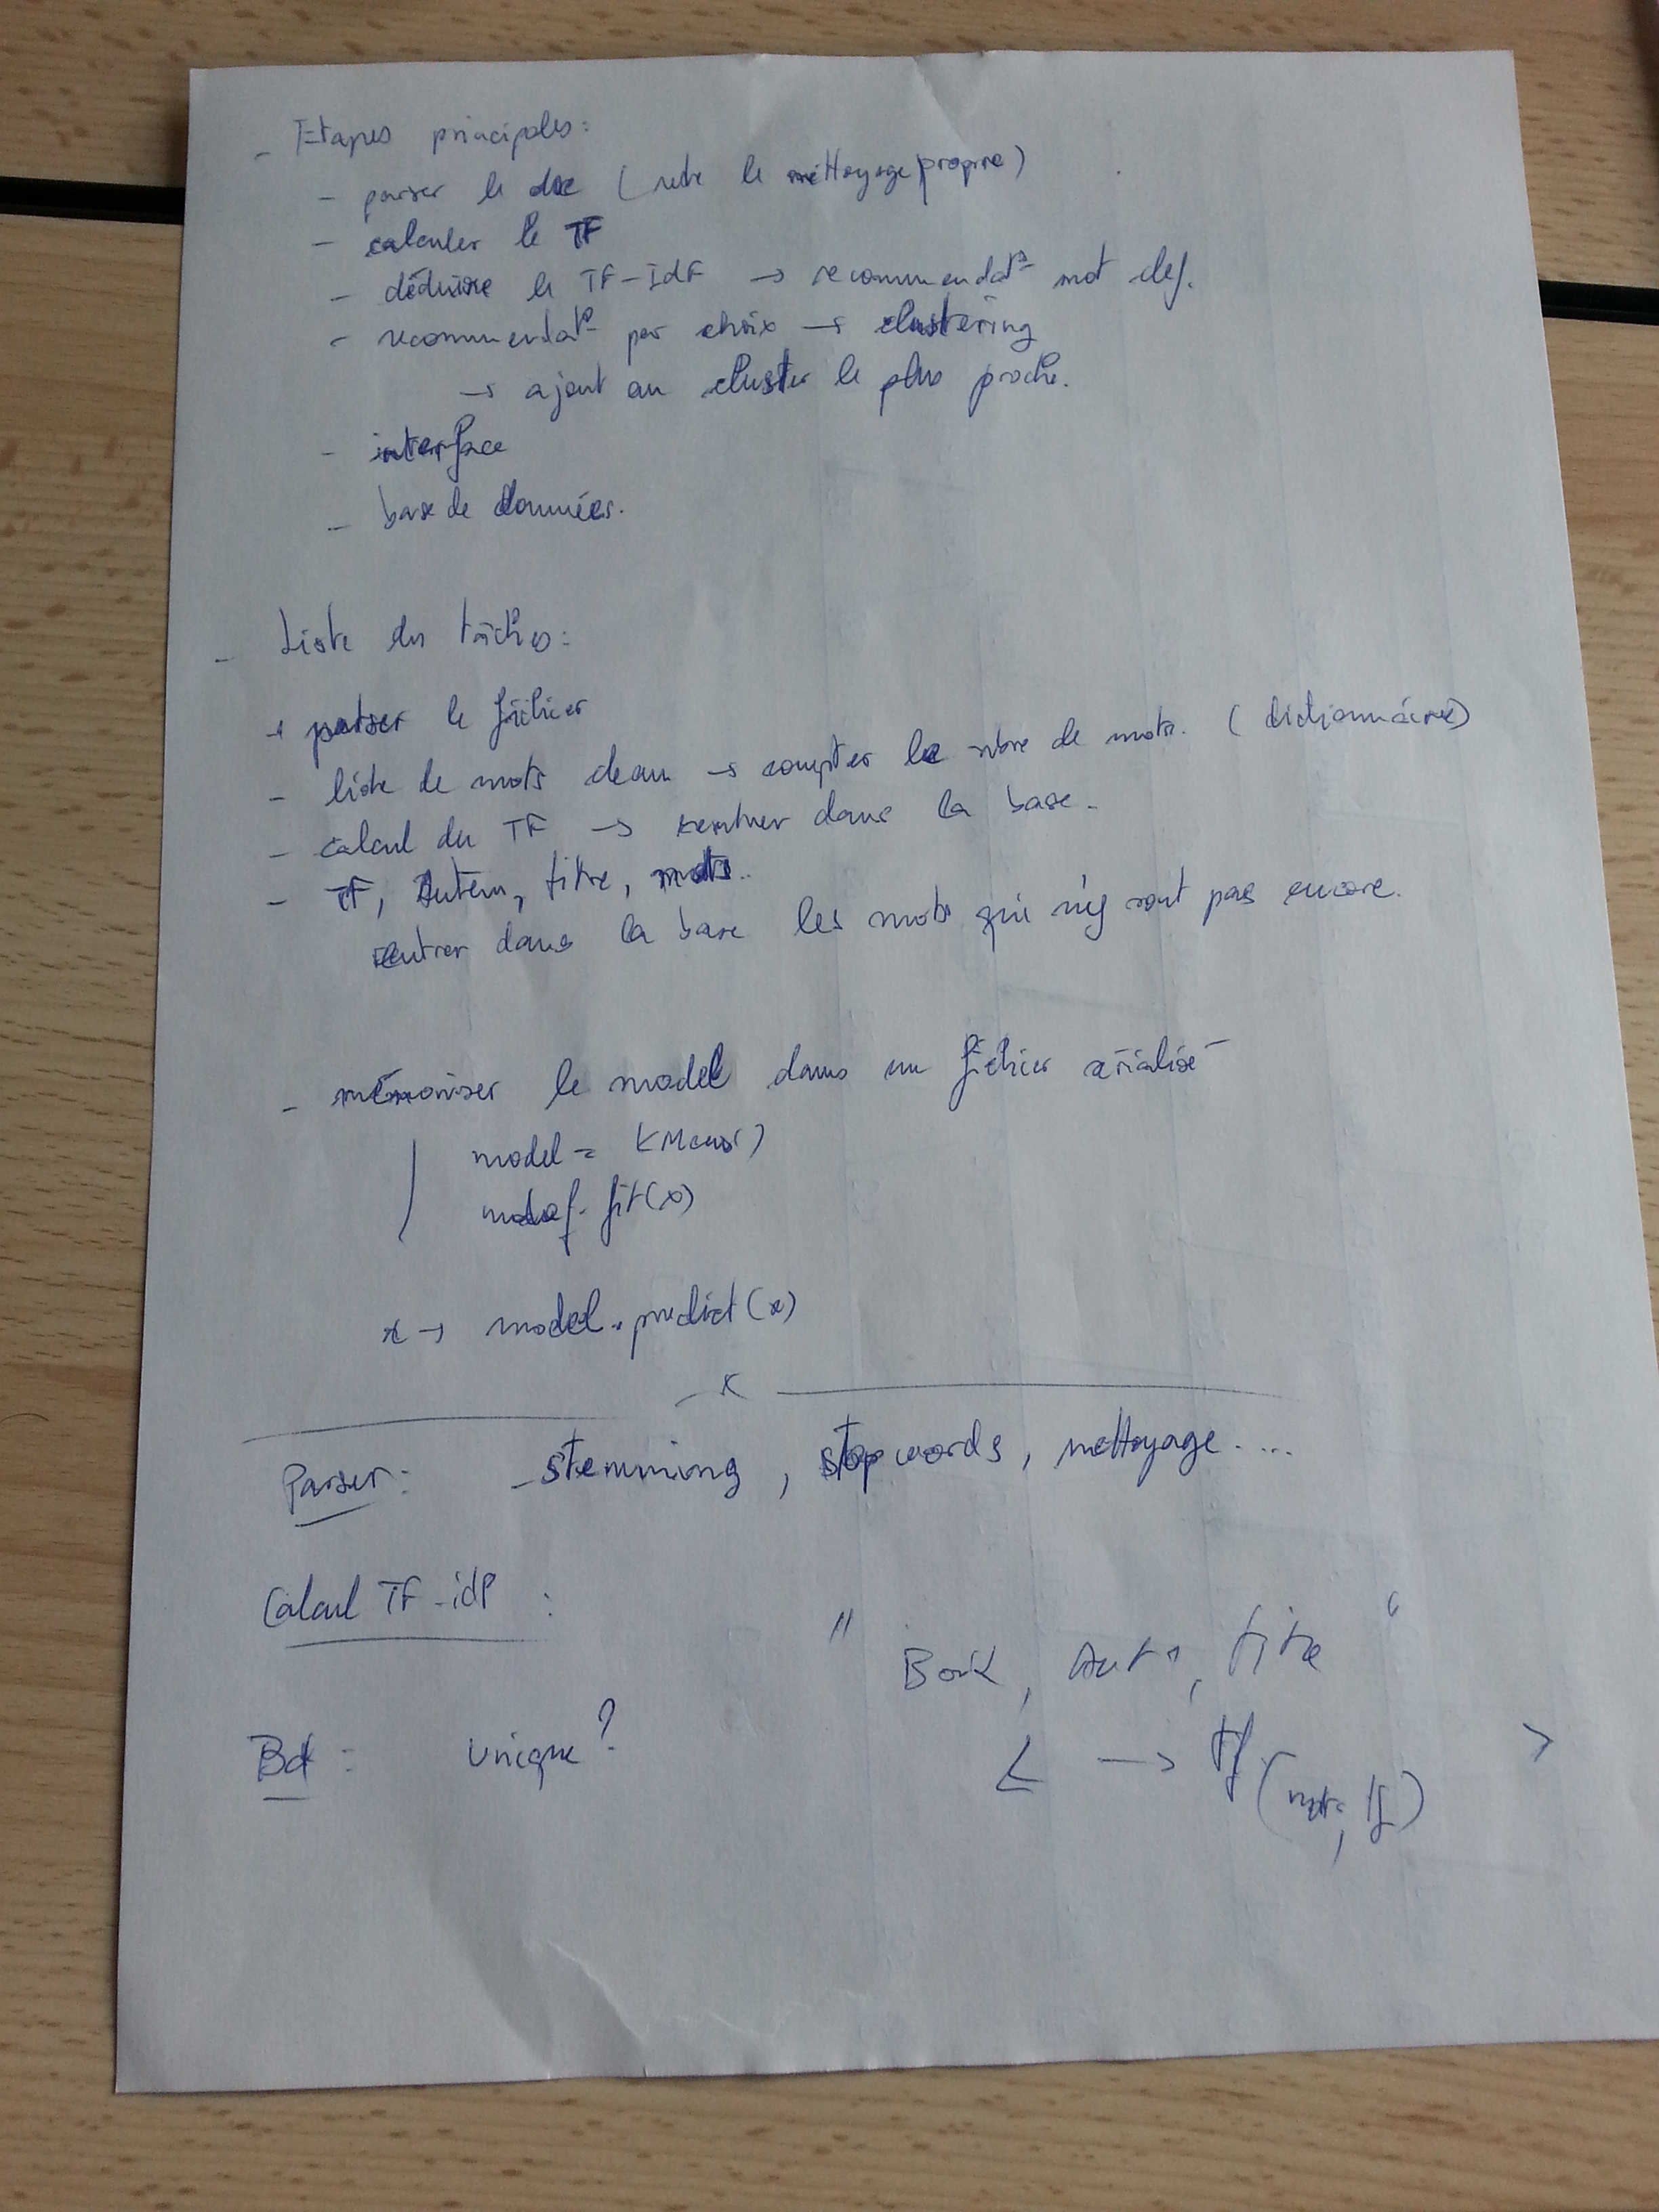 - Etapes principales :
- parser le doc ( nettoyage propre)
- calculer le TF
- déduire le TF-idf → recommendat° mot clef.
- recommendat° par choix → clustering
→ ajout au cluster le plus proche.
- interface
- base de données.
- Liste des tâches :
+ parser le fichier
- liste de mots clean → compter le nbre de mots. (dictionnaire)
- calcul du TF → rentrer dans la base.
- TF, auteur, titre, mots..
rentrer dans la base les mots qui n'y sont pas encore.
- mémoriser le model dans un fichier
model = KMeans()
model.fit(x)
x → model.predict(x)
Parser : - stemming, stop words, nettoyage....
Calcul TF-idf : "
Book, auto, titre
Bd : unique ?
→ tf (